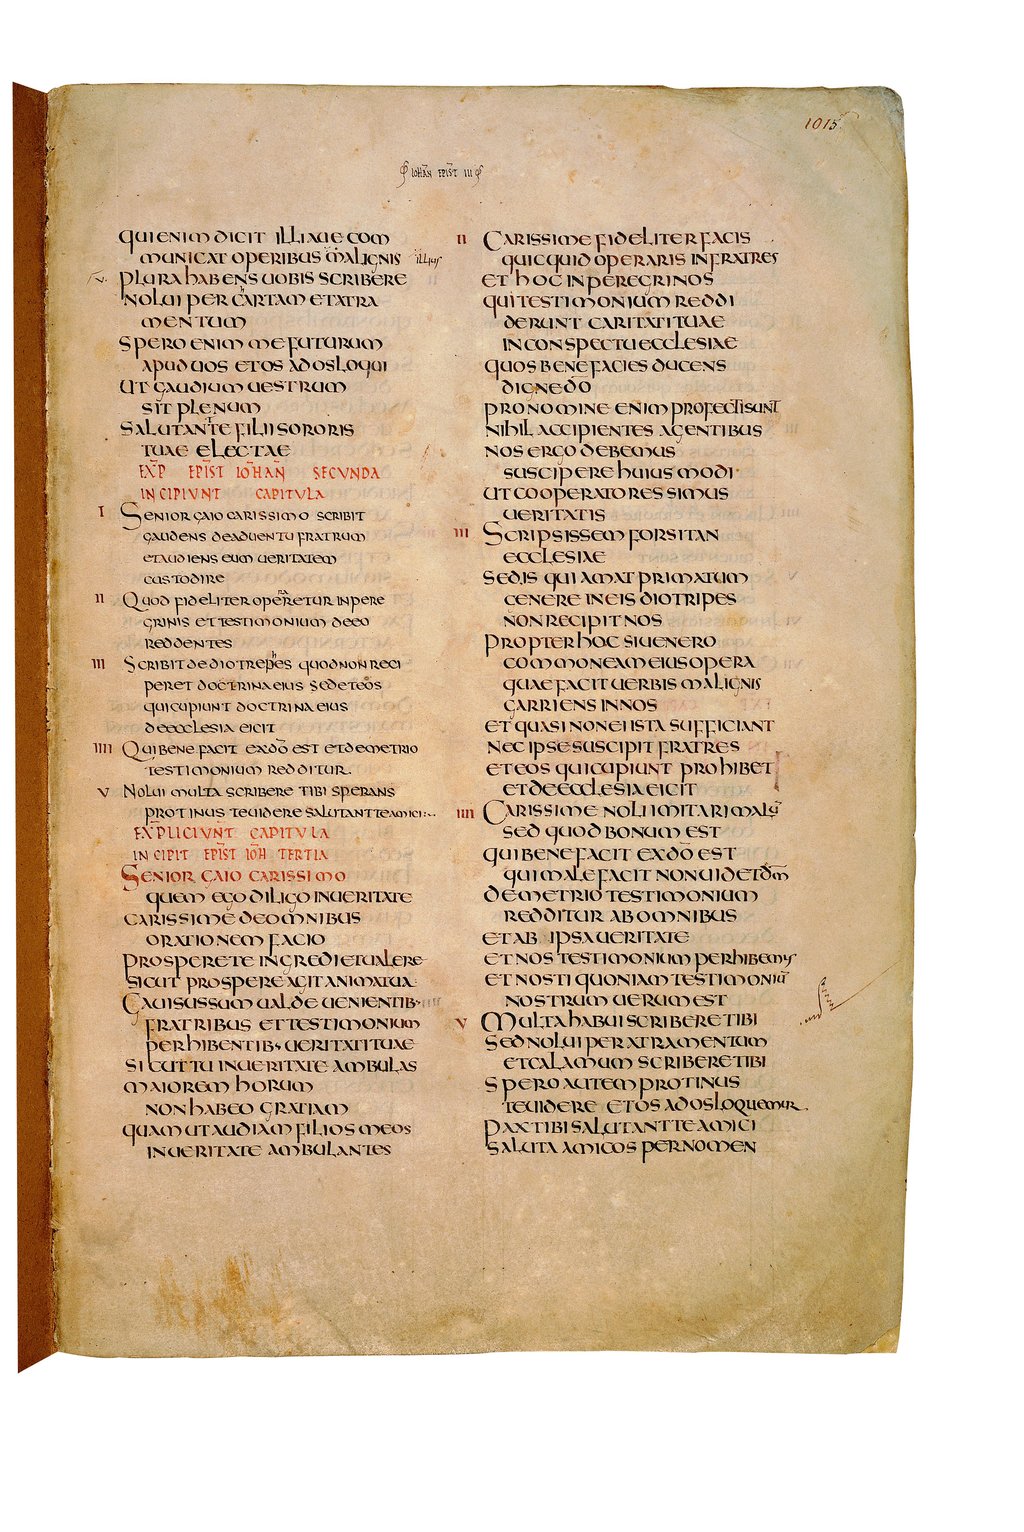 1015
IOHAN EPIST III
QUI ENIM DICIT ILLI AUE COM
MUNICAT OPERIBUS MALIGNIS illius
V PLURA HABENS UOBIS SCRIBERE
NOLUI PER CARTAM ET ATRA
MENTUM
SPERO ENIM ME FUTURUM
APUD UOS ET OS AD OS LOQUI
UT GAUDIUM UESTRUM
SIT PLENUM
SALUTANT TE FILII SORORIS
TUAE ELECTAE
EXP EPIST IOHAN SECVNDA
INCIPIVNT CAPITVLA
I SENIOR GAIO CARISSIMO SCRIBIT
GAUDENS DE ADUENTU FRATRUM
ET AUDIENS EUM UERITATEM
CUSTODIRE
II QUOD FIDELITER OPERETUR IN PERE
GRINIS ET TESTIMONIUM DE EO
REDDENTES
III SCRIBIT DE DIOTREPHES QUOD NON RECI
PERET DOCTRINA EIUS SED ET EOS
QUI CUPIUNT DOCTRINA EIUS
DE ECCLESIA EICIT
IIII QUI BENE FACIT EX DŌ EST ET DEMETRIO
TESTIMONIUM REDDITUR
V NOLUI MULTA SCRIBERE TIBI SPERANS
PROTINUS TE UIDERE SALUTANT TE AMICI
EXPLICIVNT CAPITVLA
INCIPIT EPIST IOH TERTIA
SENIOR GAIO CARISSIMO
QUEM EGO DILIGO IN UERITATE
CARISSIME DE OMNIBUS
ORATIONEM FACIO
PROSPERE TE INGREDI ET UALERE
SICUT PROSPERE AGIT ANIMA TUA
GAUISUS SUM UALDE UENIENTIB·
FRATRIBUS ET TESTIMONIUM
PERHIBENTIB· UERITATI TUAE
SICUT TU IN UERITATE AMBULAS
MAIOREM HORUM
NON HABEO GRATIAM
QUAM UT AUDIAM FILIOS MEOS
IN UERITATE AMBULANTES
II CARISSIME FIDELITER FACIS
QUICQUID OPERARIS IN FRATRES
ET HOC IN PEREGRINOS
QUI TESTIMONIUM REDDI
DERUNT CARITATI TUAE
IN CONSPECTU ECCLESIAE
QUOS BENEFACIES DUCENS
DIGNE DŌ
PRO NOMINE ENIM PROFECTI SUNT
NIHIL ACCIPIENTES A GENTIBUS
NOS ERGO DEBEMUS
SUSCIPERE HUIUSMODI
UT COOPERATORES SIMUS
UERITATIS
III SCRIPSISSEM FORSITAN
ECCLESIAE
SED IS QUI AMAT PRIMATUM
GENERE IN EIS DIOTRIPES
NON RECIPIT NOS
PROPTER HOC SI UENERO
COMMONEAM EIUS OPERA
QUAE FACIT UERBIS MALIGNIS
GARRIENS IN NOS
ET QUASI NON EI ISTA SUFFICIANT
NEC IPSE SUSCIPIT FRATRES
ET EOS QUI CUPIUNT PROHIBET
ET DE ECCLESIA EICIT
IIII CARISSIME NOLI IMITARI MALŪ
SED QUOD BONUM EST
QUI BENEFACIT EX DŌ EST
QUI MALEFACIT NON UIDET DM̄
DEMETRIO TESTIMONIUM
REDDITUR AB OMNIBUS
ET AB IPSA UERITATE
ET NOS TESTIMONIUM PERHIBEMUS
ET NOSTI QUONIAM TESTIMONIŪ
NOSTRUM UERUM EST
V MULTA HABUI SCRIBERE TIBI
SED NOLUI PER ATRAMENTUM
ET CALAMUM SCRIBERE TIBI
SPERO AUTEM PROTINUS
TE UIDERE ET OS AD OS LOQUEMUR
PAX TIBI SALUTANT TE AMICI
SALUTA AMICOS PER NOMEN